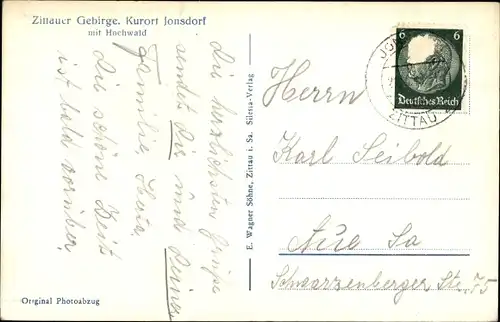 Zittauer Gebirge. Kurort Jonsdorf
mit Hochwald
Die herzlichsten Grüße
sendet Dir und Deiner
Familie
Die schöne Zeit
ist bald vorüber.
Original Photoabzug
E. Wagner Söhne, Zittau i. Sa. Silesia-Verlag
6 6
Deutsches Reich
ZITTAU
Herrn
Karl Seibold
Aue Sa
Schwarzenberger Str. 75